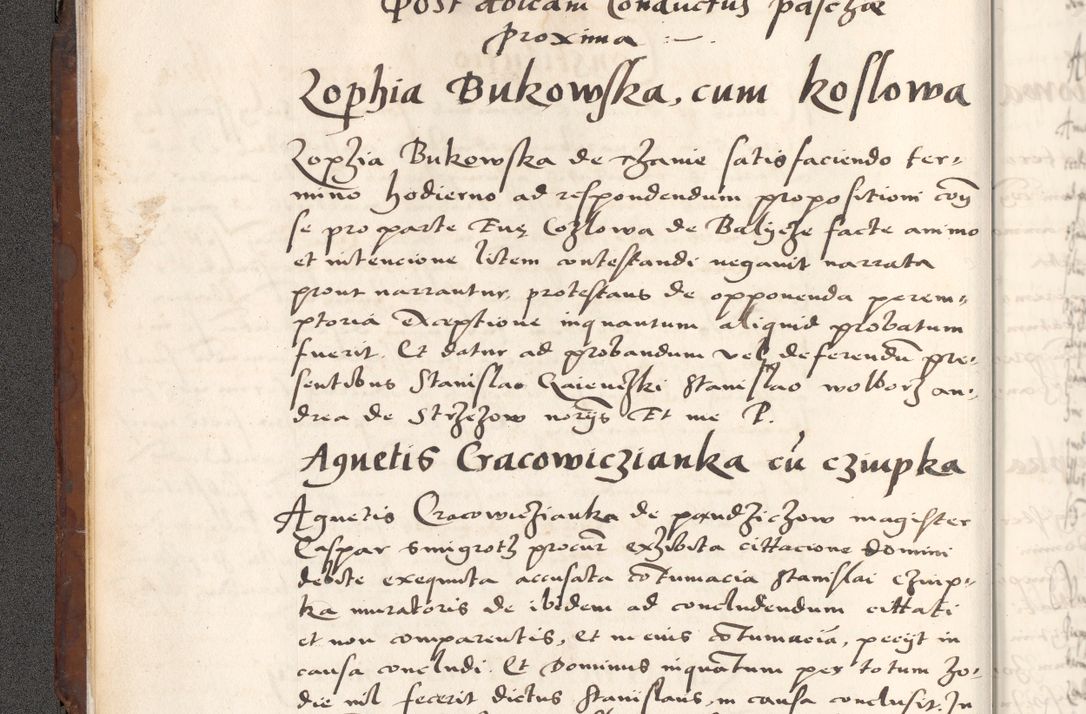 post dnicam Conductus paschae
proxima
Zophia Bukowska, cum koslowa
Zophia Bukowska de rzanie satisfaciendo ter-
mino hodierno ad respondendum propositioni con
se pro parte Cozlowa de facte animo
et intencione litem contestandi negavit narrata
prout narrantur, protestans de opponenda perem-
ptoria exceptione inquantum aliquid probatum
fuerit. Et datur ad probandum vel deferendū pre-
sentibus Stanislao Stanislao wolborz an-
drea de Strzezow Et me P.
Agnetis Cracowiczianka cū czinpka
Agnetis Cracowiczianka de magister
Caspar smigrotz procur exhibita cittacione domini
debite exequuta accusata cotumacia Stanislai czinp-
ka muratoris de ibidem ad concludendum cittati
et non comparentis, Et in eius cotumaciā, petijt in
causa concludi. Et Dominus inquantum per totum ho-
die nil fecerit dictus Stanislaus, in causa conclusit. In